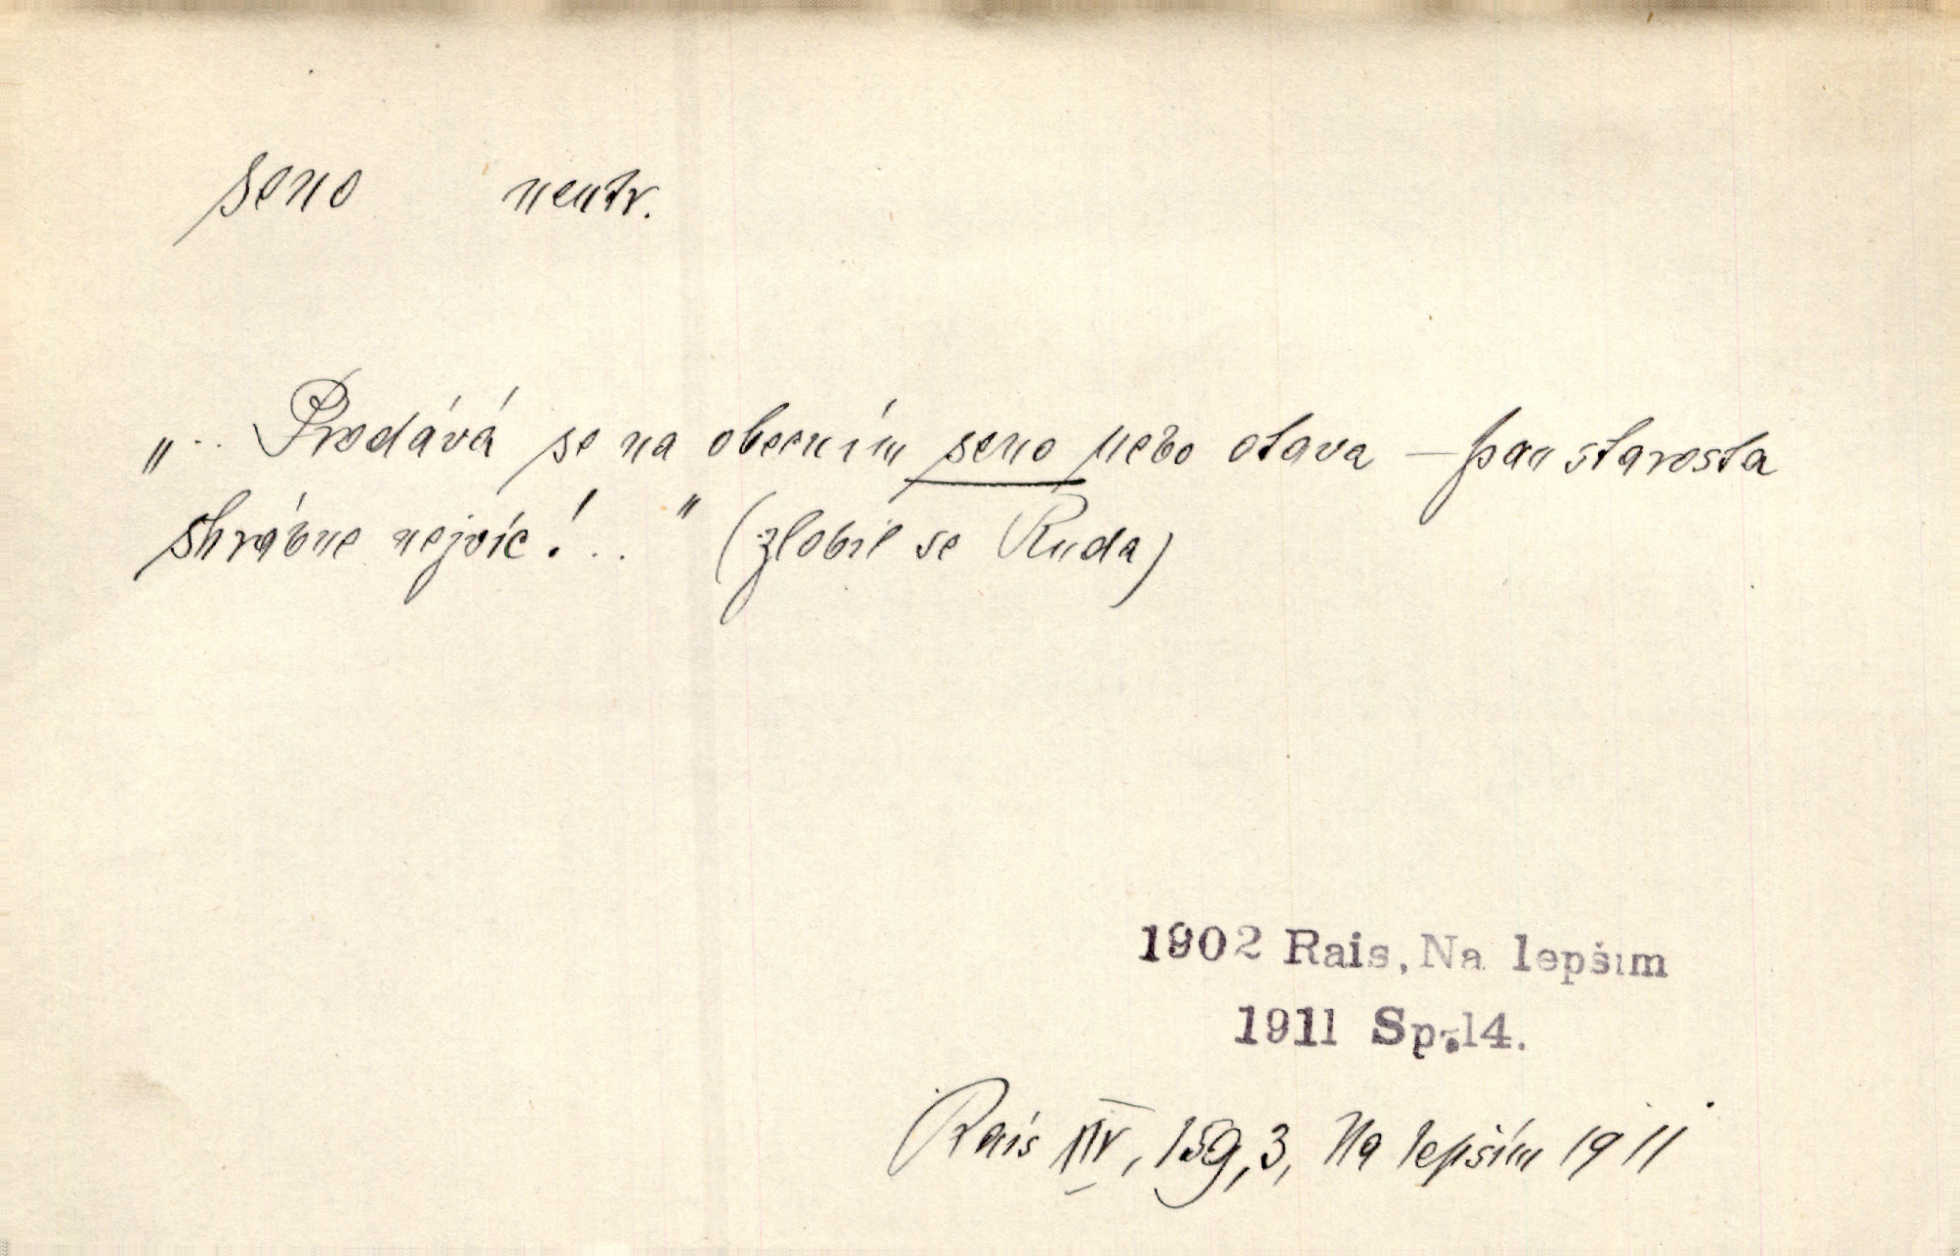 seno neutr.
„.. Prodává se na obecním seno nebo otava – pan starosta
shrábne nejvíc!.." (zlobil se Ruda)
1902 Rais, Na lepším
1911 Sp. 14.
Rais XIV, 159,3, Na lepším 1911